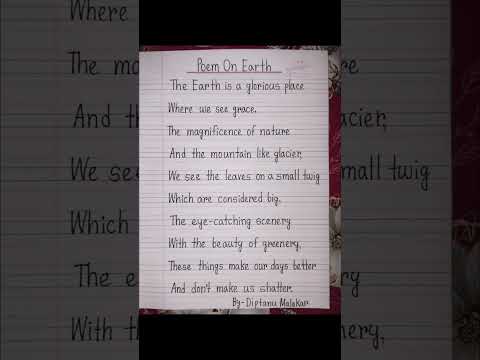 Poem On Earth
The Earth is a glorious place
Where we see grace.
The magnificence of nature
And the mountain like glacier,
We see the leaves on a small twig
Which are considered big.
The eye-catching scenery
With the beauty of greenery,
These things make our days better
And don't make us shatter.
By-Diptanu Malakar